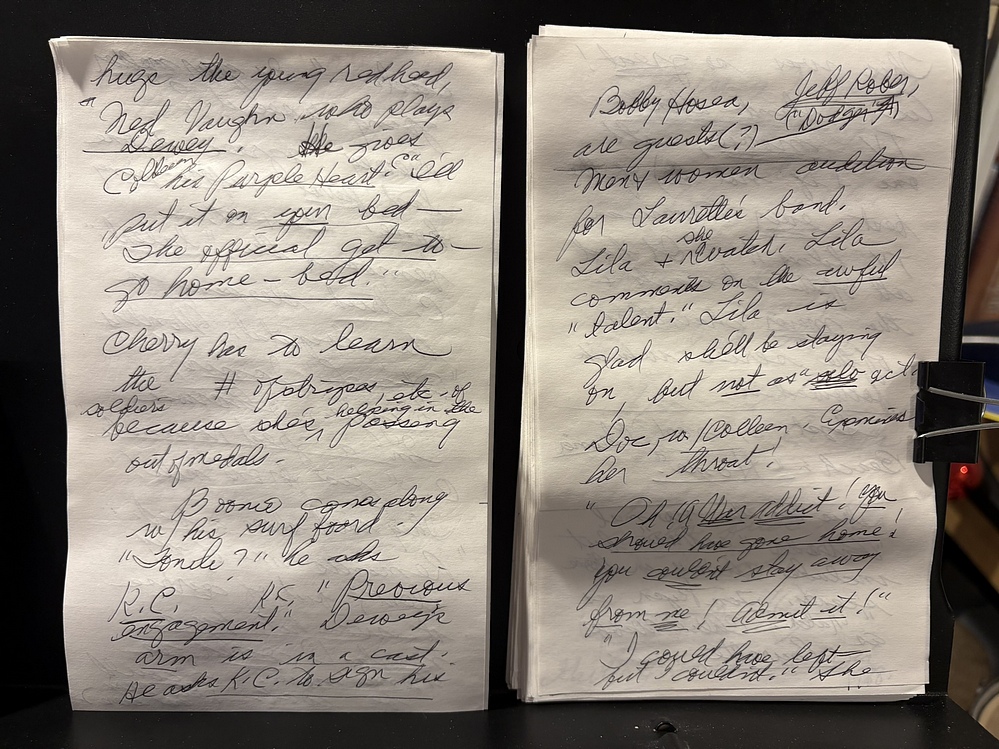 hugs the young redhead,
"Ned Vaughn who plays
Dewey. He gives
Colleen his Purple Heart: "I'll
put it on your bed—
the official get to
go home – bed."
Cherry has to learn
the # of stripes, etc. of
soldiers because she's helping in the passing
out of medals.
Boonie comes along
w/ his surf board.
"Tonite?" he asks
K.C. K.C. "Previous
engagement." Dewey's
arm is in a cast.
He asks K.C. to sign his
Bobby Hosea, Jeff Kober,
are guests(?) ("Dodger")
Men & women audition
for Laurette's band.
Lila + she watch. Lila
comments on the awful
"talent." Lila is
glad she'll be staying
on, but not as
Doc, w/ Colleen, examines
her throat!
"You
should have gone home!
You couldn't stay away
from me! Admit it!"
"I could have left
but I couldn't." She